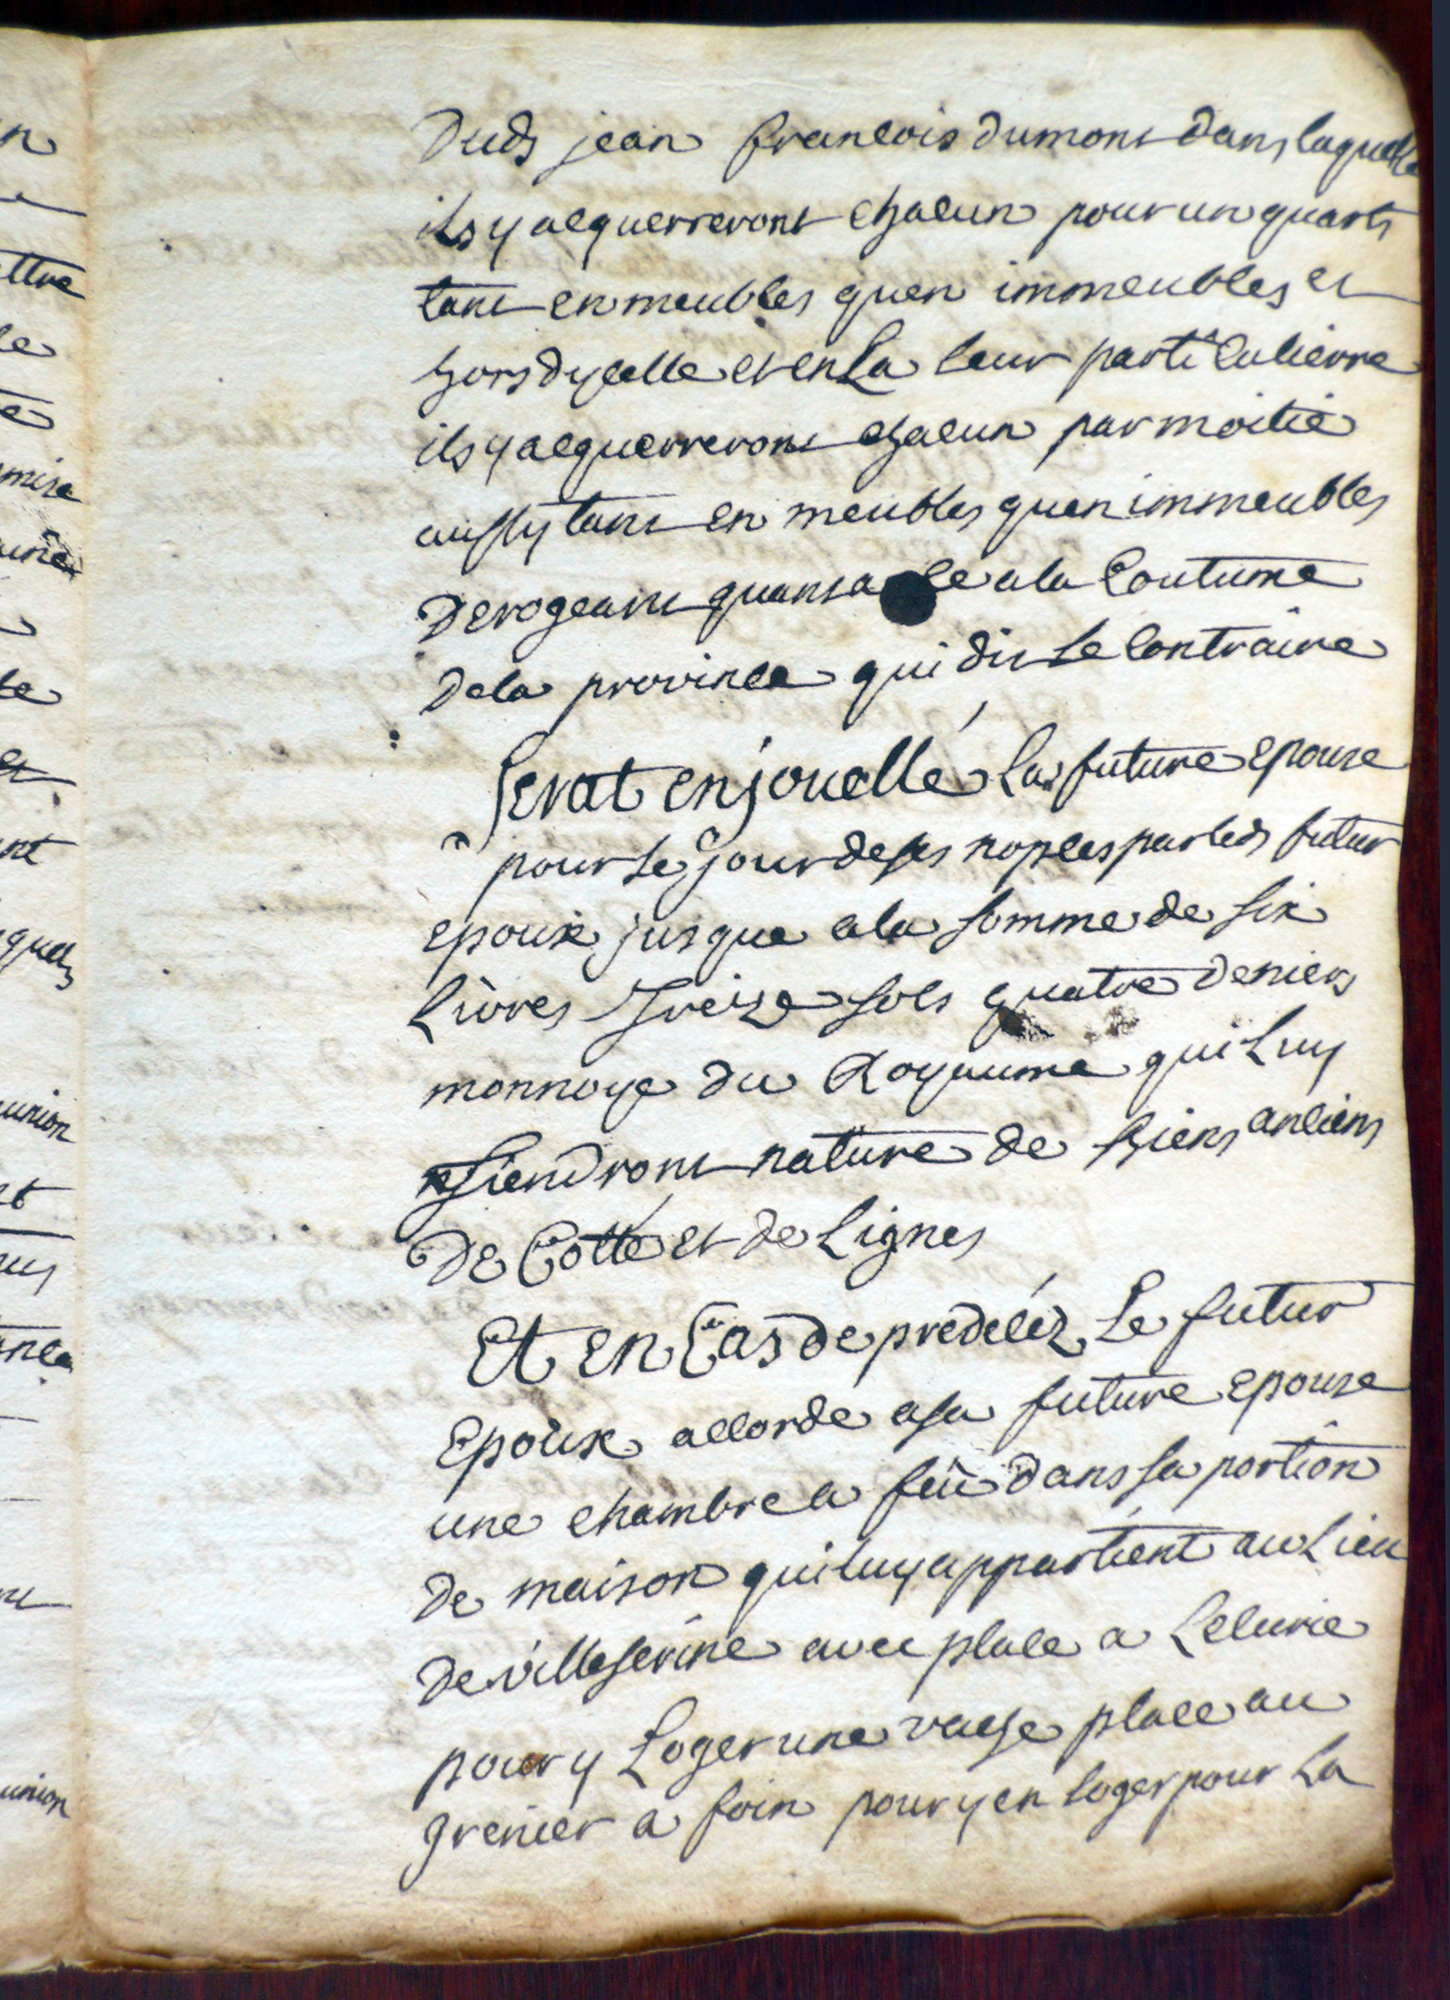 dud jean francois dumont dans laquelle
ils y acquerreront chacun pour un quart
tant en meubles quen immeubles et
hors dycelle et en La leur particulierre
ils y acquerreront chacun par moitié
aussy tant en meubles quen immeubles
derogeant quant a ce a la Coutume
de la province qui dit Le Contraire
Serat enjouellé La future epouse
pour Le Jour de ses nopces par led futur
epoux jusque a la somme de six
Livres Treize sols quatre deniers
monnoye du Royaume qui Luy
tiendront nature de biens anciens
De Cotté et de Lignes
Et en Cas de predecéz Le futur
Epoux accorde a sa future epouse
une chambre a feu dans sa portion
de maison qui luy appartient au Lieu
de villeserine avec place a Lecurie
pour y Loger une vache place au
grenier a foin pour y en loger pour La
ttre
mise
quel
union
union